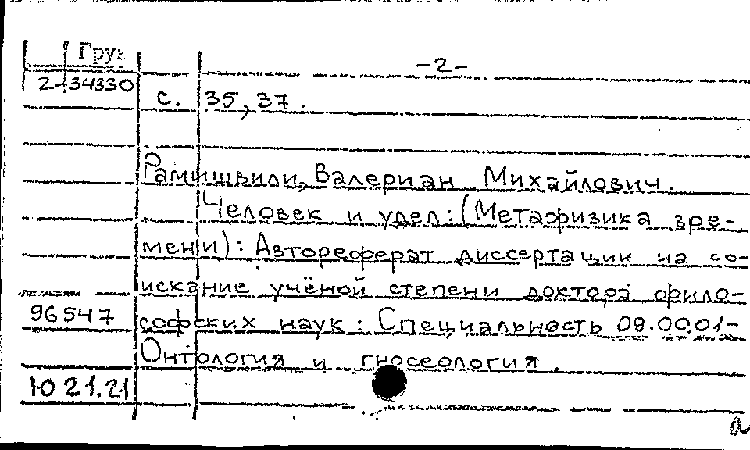 Груз
-2-
2-34330
с. 35, 37.
Рамишвили, Валериан Михайлович.
Человек и удел: (Метафизика вре-
мени): Автореферат диссертации на со-
искание учёной степени доктора фило-
96547
софских наук: Специальность 09.00.01-
Онтология и гносеология.
10 21.21
а